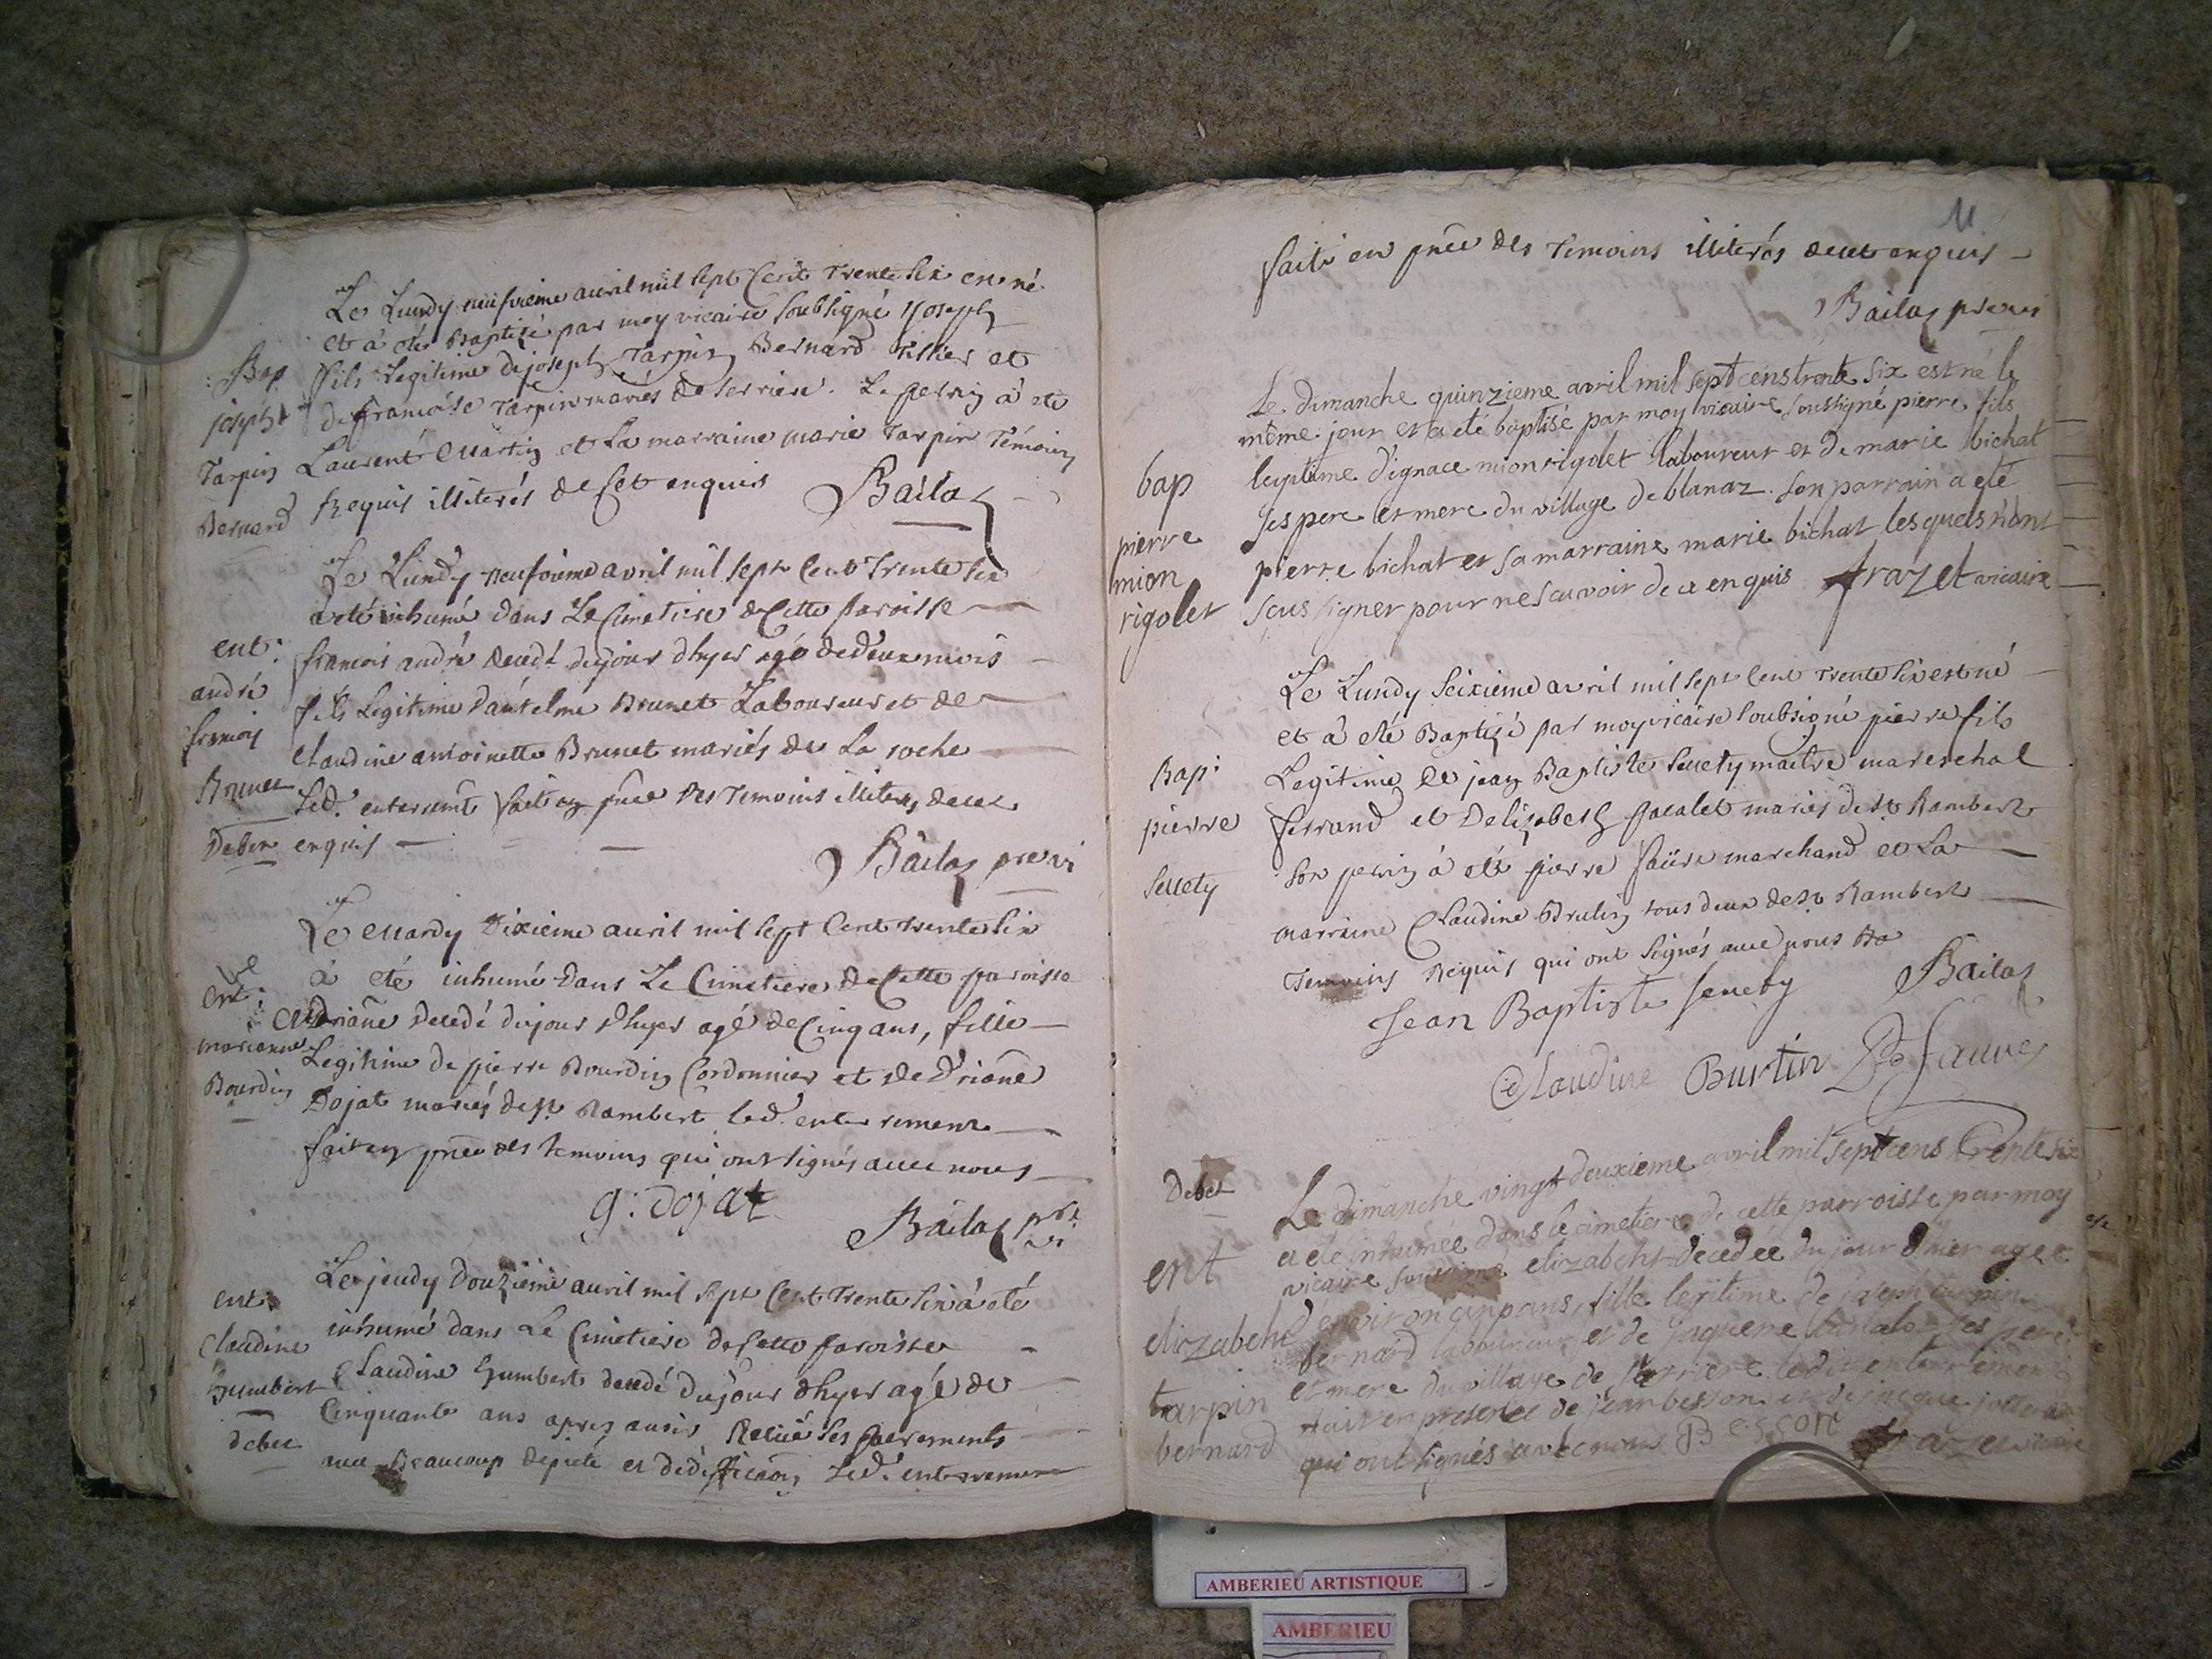 Le Lundy neufvieme avril mil sept Cent Trente six est né
et à été Baptizé par moy vicaire soubsigné Joseph
Bap fils Legitime de joseph Tarpin Bernard Tissier et
joseph de francoise Tarpin mariés de serriere. Le perrin à eté
Tarpin Laurent Martin et La marraine marie Tarpin Témoins
Bernard Requis illiterés de Cet enquis Bailaz
Le Lundy neufvieme avril mil sept Cent Trente six
a eté inhumé dans Le Cimetiere de Cette paroisse
ent: francois andré decedé du jour d'hyer agé de deux mois
andré fils Legitime d'antelme Brunet Laboureur et de
francois Claudine antoinette Brunet mariés de La roche
Brunet Led. enterremt fait en pnce des Temoins illiterés de cet
Debet enquis
Bailaz pre vi
Le Mardy Dixieme avril mil sept Cent trente six
à eté inhumé dans Le Cimetiere de Cette paroisse
ent: Mariane decedé du jour d'hyer agé de Cinq ans, fille
marianne Legitime de pierre Bourdin Cordonnier et de
Bourdin Dojat mariés de St Rambert led. enterrement
fait en pnce des temoins qui ont signés avec nous
g: Dojat
Bailaz pre vi
Le jeudy Douzieme avril mil sept Cent Trente six à eté
ent: inhumé dans Le Cimetiere de Cette paroisse
Claudine Claudine humbert decedé du jour d'hyer agé de
humbert Cinquante ans apres avoir Recus ses sacrements
debet avec Beaucoup de pieté et d'edification Led. enterrement
11
fait en pnce des Temoins illiterés de cet enquis
Bailaz pre vi
Le dimanche quinzieme avril mil sept cens trente six est né le
même jour et a eté baptisé par moy vicaire soussigné pierre fils
bap legitime d'ignace mion rigolet laboureur et de marie bichat
pierre ses pere et mere du village de blanaz. son parrain a eté
mion pierre bichat et sa marraine marie bichat lesquels n'ont
rigolet sous signer pour ne scavoir de ce enquis frazet vicaire
Le Lundy seixieme avril mil sept Cent Trente six est né
et à eté Baptizé par moy vicaire soubsigné pierre fils
Bap: Legitime de jean Baptiste Senety maitre mareschal
pierre ferrand et d'elizabeth pacalet mariés de St Rambert
Senety son perrin à eté pierre faüre marchand et La
marraine Claudine Brutin tous deux de St Rambert
Temoins Requis qui ont signés avec nous
Jean Baptiste Senety Bailaz
Claudine Burtin faure
Debet Le dimanche vingt deuxieme avril mil sept cens trente six
a eté inhumée dans le cimetiere de cette parroisse par moy
ent vicaire soussigné elizabeht decedée du jour d'hier agée
elizabeht d'environ cinq ans fille legitime de joseph tarpin
bernard laboureur et de jaquene ses pere
tarpin et mere du village de serriere ledit enterrement
bernard fait en presence de jean besson et de jacque
qui ont signés avec nous Besson frazet vicaire
AMBERIEU ARTISTIQUE
AMBERIEU